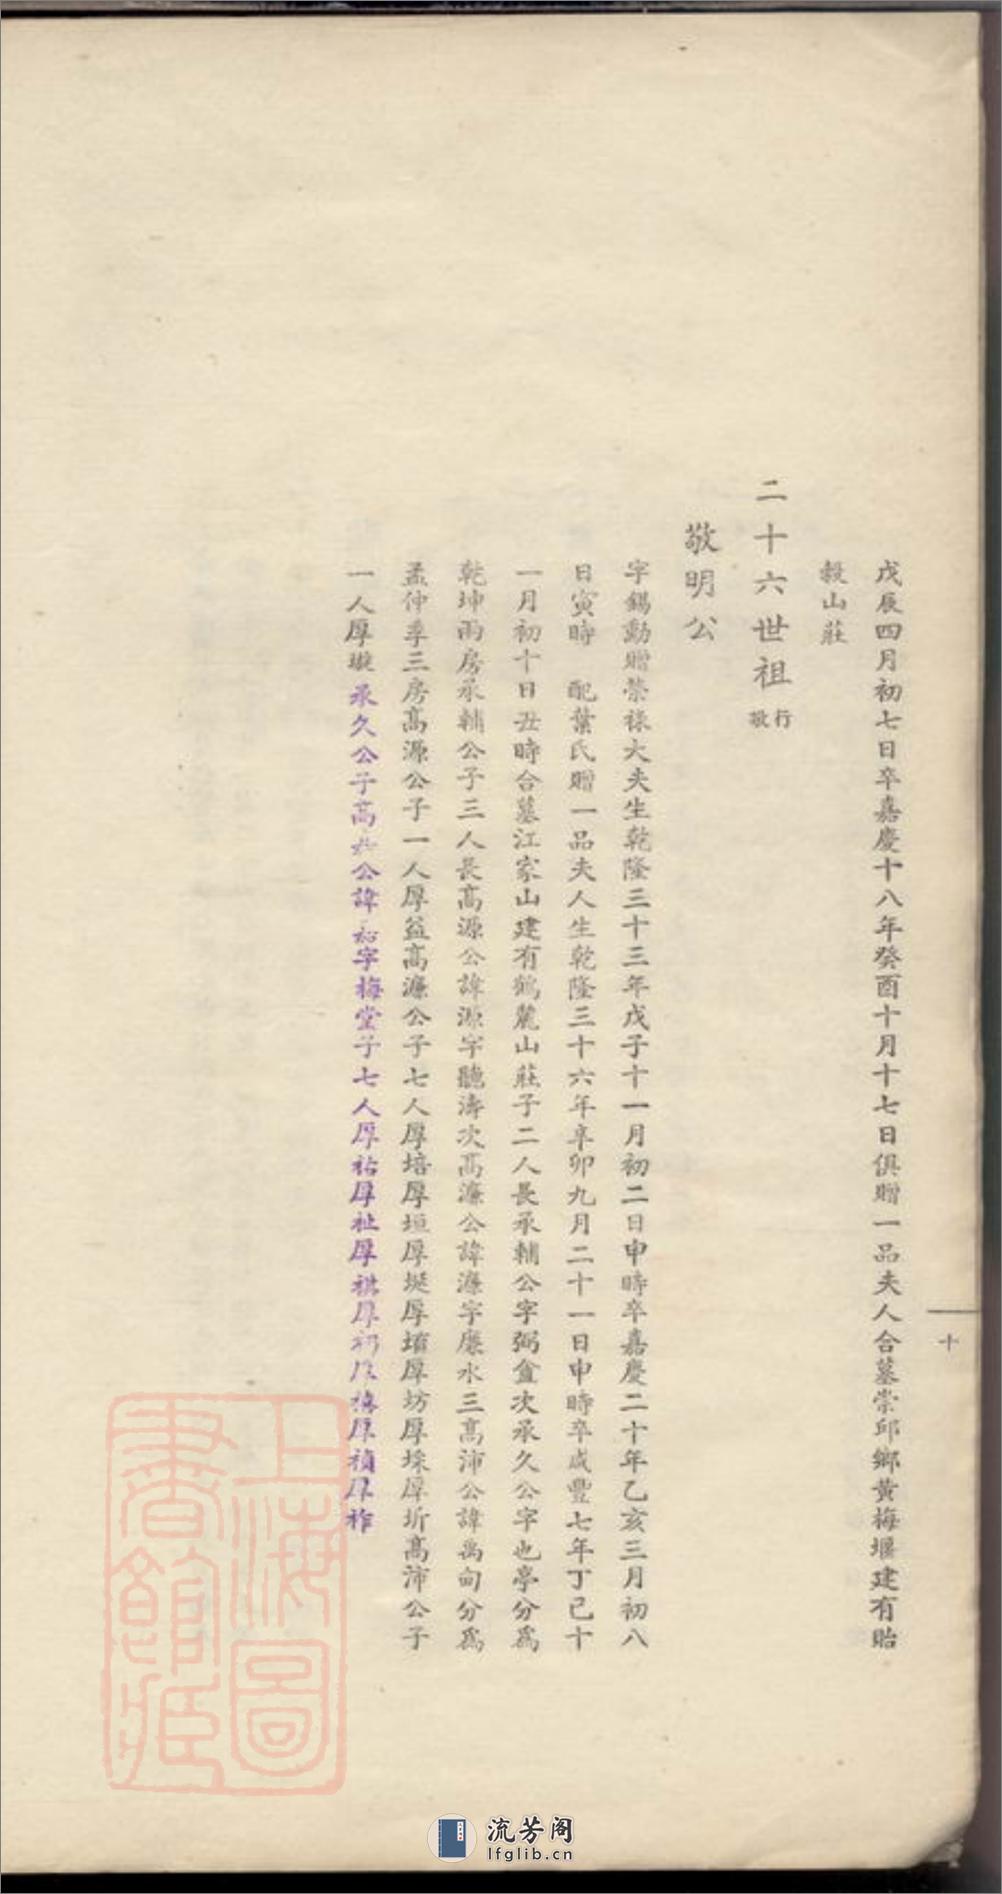 戊辰四月初七日卒嘉慶十八年癸酉十月十七日俱贈一品夫人合墓崇邱鄉黃梅堰建有貽
穀山莊
二十六世祖 行敬
敬明公
字錫勳贈榮祿大夫生乾隆三十三年戊子十一月初二日申時卒嘉慶二十年乙亥三月初八
日寅時 配葉氏贈一品夫人生乾隆三十六年辛卯九月二十一日申時卒咸豐七年丁巳十
一月初十日丑時合墓江家山建有鶴麓山莊子二人長承輔公字弼盦次承久公字也亭分爲
乾坤兩房承輔公子三人長高源公諱源字聽濤次高濂公諱濂字廉水三高沛公諱禹甸分爲
孟仲季三房高源公子一人厚益高濂公子七人厚培厚垣厚埏厚堉厚坊厚埰厚圻高沛公子
一人厚璇承久公子高公諱字梅堂子七人厚祐厚祉厚祺厚厚厚禎厚祚
十
上海圖書館藏
流芳阁
lfglib.cn